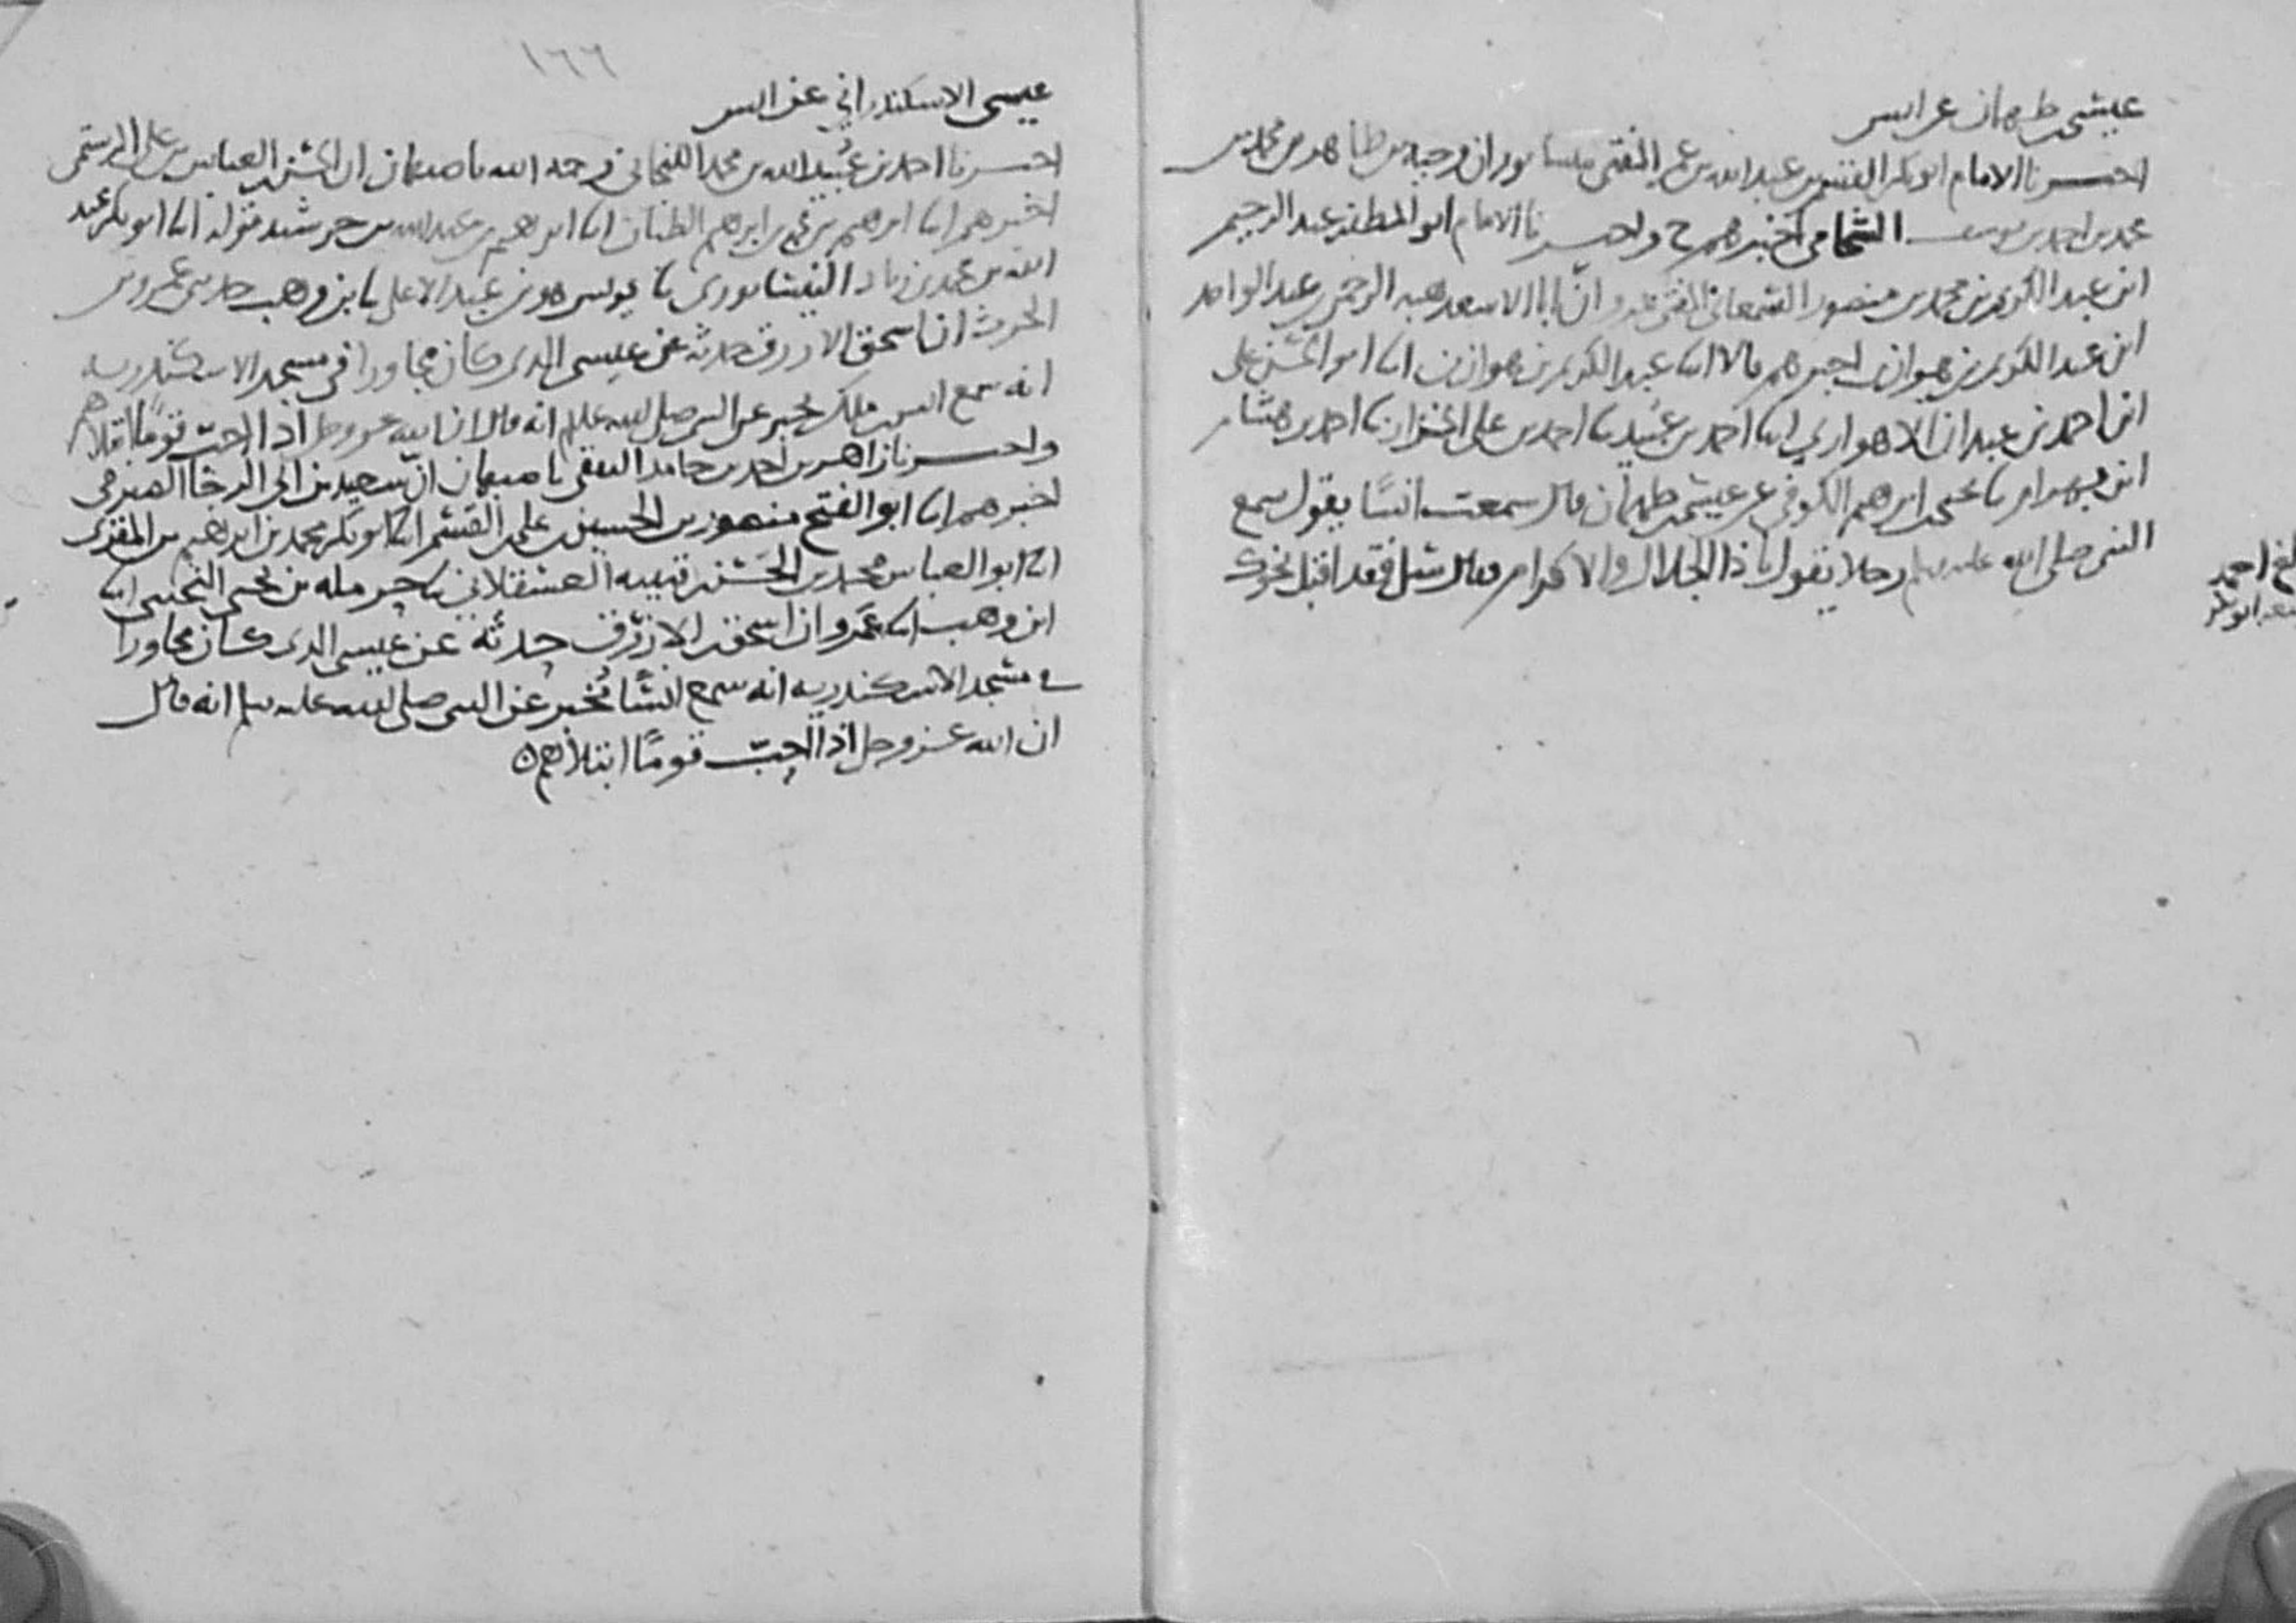 عيسى بن طهمان عن انس
اخبرنا الامام ابو بكر القسم بن عبد الله بن عمر المفتي بنيسابور ان وجيه بن طاهر بن محمد بن
محمد بن احمد بن يوسف الشحامي اخبرهم ح واخبرنا الامام ابو المظفر عبد الرحيم
ابن عبد الكريم بن محمد بن منصور السمعاني المفتي بمرو ان ابا الاسعد هبة الرحمن بن عبد الواحد
ابن عبد الكريم بن هوازن اخبرهم قالا انا عبد الكريم بن هوازن انا ابو الحسن علي
ابن احمد بن عبدان الاهوازي انا احمد بن عبيد نا احمد بن علي الخزاز نا احمد بن هشام
ابن بهرام نا يحيى بن ابرهيم الكوفي عن عيسى بن طهمان قال سمعت انسا يقول سمع
النبي صلى الله عليه وسلم رجلا يقول يا ذا الجلال والاكرام فقال سل فقد اقبل نحوك
احمد
١٦٦
عيسى الاسكندراني عن انس
اخبرنا احمد بن عبيد الله بن محمد اللنجاني رحمه الله باصبهان ان الحسن بن العباس بن علي الرستمي
اخبرهم انا ابرهيم بن محمد بن ابرهيم الطيان انا ابرهيم بن عبد الله بن خرشيد قوله انا ابو بكر عبد
الله بن محمد بن زياد النيسابوري نا يونس هو بن عبد الاعلى نا بن وهب حدثني عمرو بن
الحرث ان اسحق الازرق حدثه عن عيسى الذي كان مجاورا في مسجد الاسكندرية
انه سمع انس بن ملك يخبر عن النبي صلى الله عليه وسلم انه قال ان الله عز وجل اذا احب قوما ابتلاهم
واخبرنا زاهر بن احمد بن حامد الثقفي باصبهان ان سعيد بن ابي الرجا الصيرفي
اخبرهم انا ابو الفتح منصور بن الحسين بن علي بن القسم انا ابو بكر محمد بن ابرهيم بن المقرئ
انا ابو العباس محمد بن الحسن بن قتيبة العسقلاني نا حرملة بن يحيى التجيبي انا
ابن وهب انا عمرو ان اسحق الازرق حدثه عن عيسى الذي كان مجاورا
في مسجد الاسكندرية انه سمع انسا يخبر عن النبي صلى الله عليه وسلم انه قال
ان الله عز وجل اذا احب قوما ابتلاهم ه